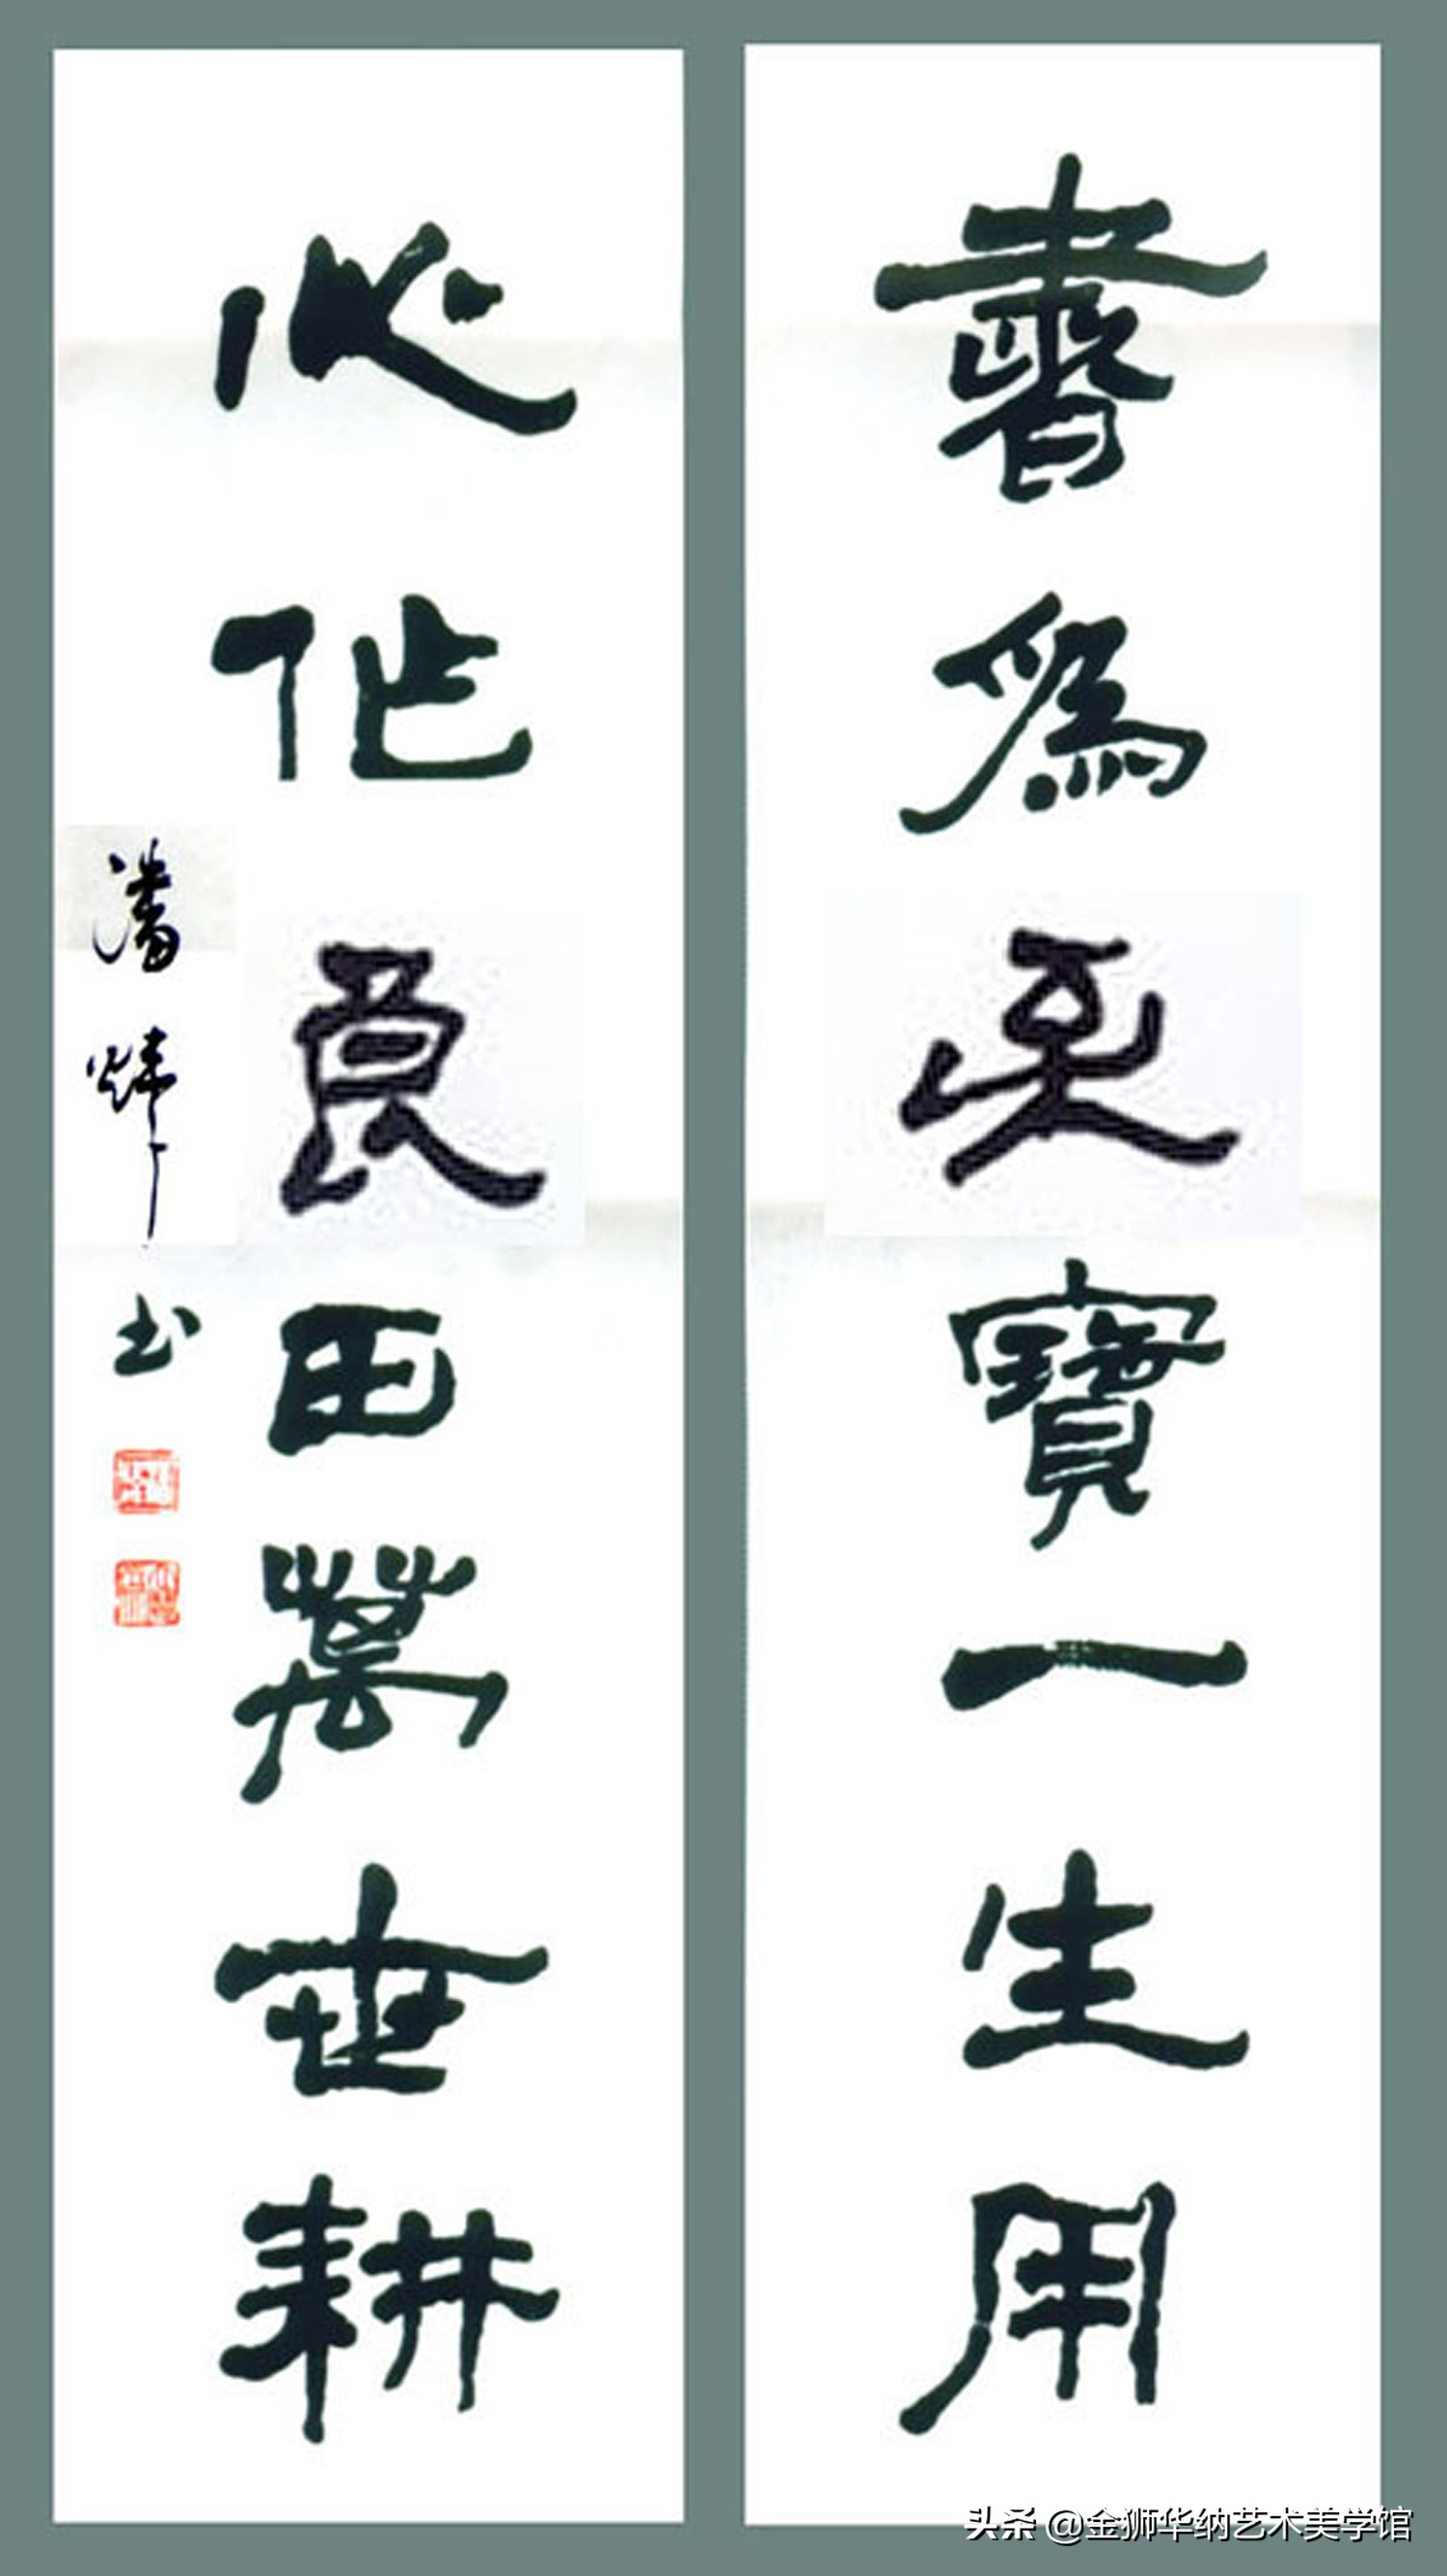 書為至寶一生用
心作良田萬世耕
潘煒书
头条 @金狮华纳艺术美学馆